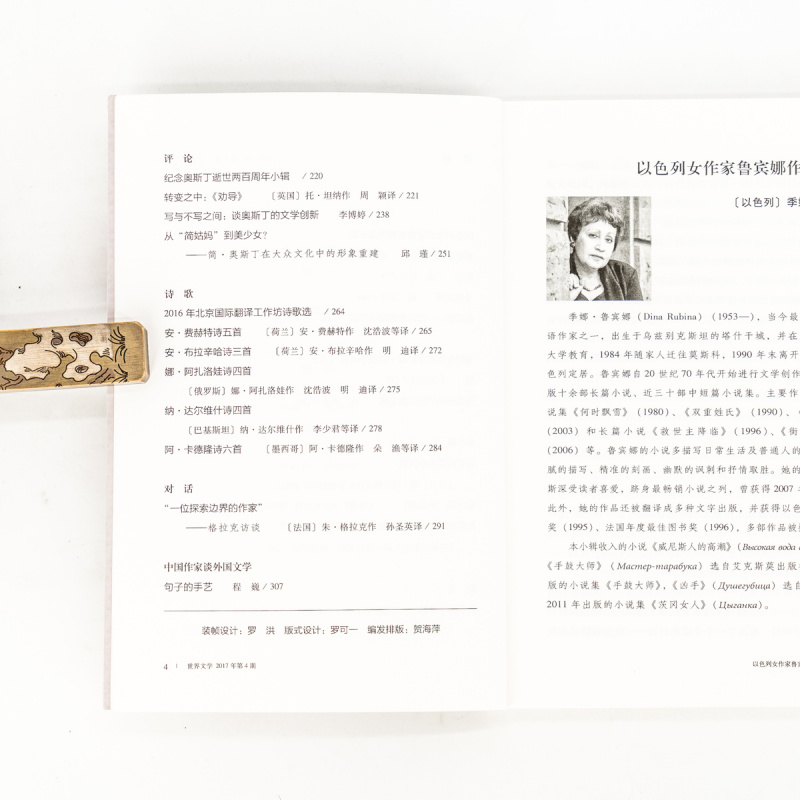 评 论
纪念奥斯丁逝世两百周年小辑 / 220
转变之中：《劝导》 〔英国〕托·坦纳作 周 颖译 / 221
写与不写之间：谈奥斯丁的文学创新 李博婷 / 238
从“简姑妈”到美少女？
——简·奥斯丁在大众文化中的形象重建 邱 瑾 / 251
诗 歌
2016 年北京国际翻译工作坊诗歌选 / 264
安·费赫特诗五首 〔荷兰〕安·费赫特作 沈浩波等译 / 265
安·布拉辛哈诗三首 〔荷兰〕安·布拉辛哈作 明 迪译 / 272
娜·阿扎洛娃诗四首
〔俄罗斯〕娜·阿扎洛娃作 沈浩波 明 迪译 / 275
纳·达尔维什诗四首
〔巴基斯坦〕纳·达尔维什作 李少君等译 / 278
阿·卡德隆诗六首 〔墨西哥〕阿·卡德隆作 朵 渔等译 / 284
对 话
“一位探索边界的作家”
——格拉克访谈 〔法国〕朱·格拉克作 孙圣英译 / 291
中国作家谈外国文学
句子的手艺 程 巍 / 307
装帧设计：罗 洪 版式设计：罗可一 编发排版：贺海萍
4 | 世界文学 2017 年第 4 期
以色列女作家鲁宾娜作
〔以色列〕季
季娜·鲁宾娜（Dina Rubina）（1953—），当今最
语作家之一，出生于乌兹别克斯坦的塔什干城，并在
大学教育，1984 年随家人迁往莫斯科，1990 年末离开
色列定居。鲁宾娜自 20 世纪 70 年代开始进行文学创作
版十余部长篇小说、近三十部中短篇小说集。主要作
说集《何时飘雪》（1980）、《双重姓氏》（1990）、
（2003）和长篇小说《救世主降临》（1996）、《街
（2006）等。鲁宾娜的小说多描写日常生活及普通人的
腻的描写、精准的刻画、幽默的讽刺和抒情取胜。她的
斯深受读者喜爱，跻身最畅销小说之列，曾获得 2007
此外，她的作品还被翻译成多种文字出版，并获得以色
奖（1995）、法国年度最佳图书奖（1996），多部作品被
本小辑收入的小说《威尼斯人的高潮》（Высокая вода
《手鼓大师》（Мастер-тарабука）选自艾克斯莫出版
版的小说集《手鼓大师》，《凶手》（Душегубица）选自
2011 年出版的小说集《茨冈女人》（Цыганка）。
以色列女作家鲁